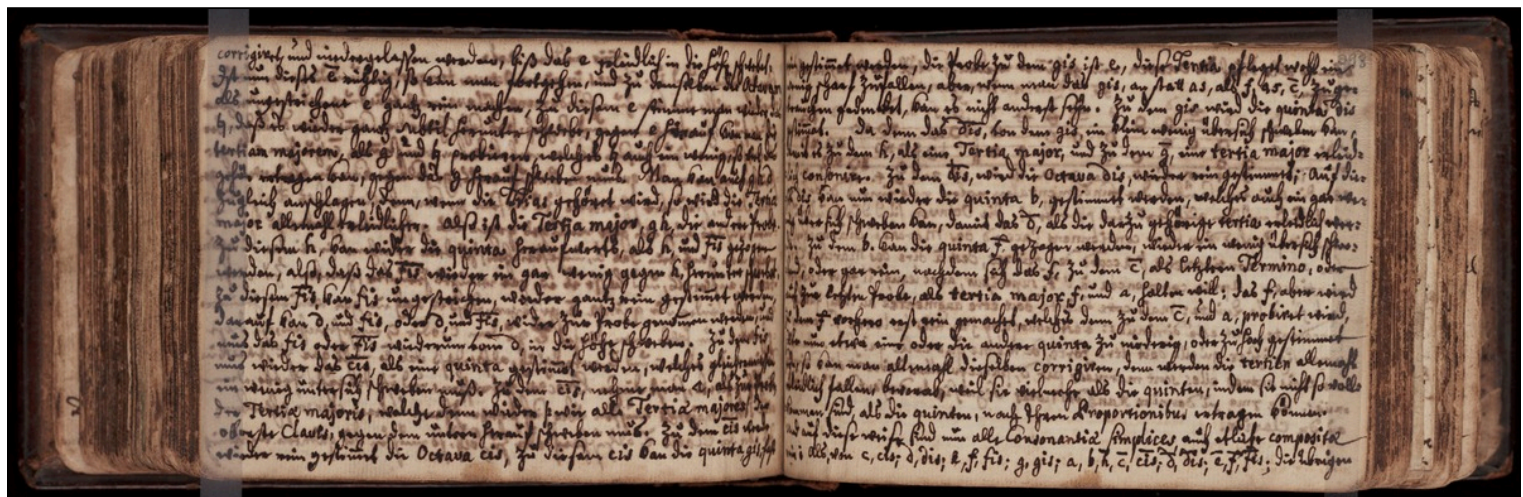 corrigiret, und niedergelassen werden, biß das e leidlich in die Höhe schwebet,
Ist nun dieses e richtig, so kan man fortgehen, und zu demselben die Octava
als ungestrichene e gantz rein machen, zu diesem e stimmet man wieder
h, daß es wieder gantz subtil herunter schwebe, gegen e
tertiam majorem, als g und h probieren, welches h auch ein wenig
ertragen kan, gegen das g herauf schweben muß. Man kan auch
zugleich anschlagen, denn, wenn die Trias gehöret wird, so wird die Tertia
major allemahl leidlicher. Also ist die Tertia major, g h, die andere Probe.
Zu diesem h, kan wieder die quinta heraufwerts, als h, und fis gezogen
werden, also, daß das fis wieder ein gar wenig gegen h, herunter
Zu diesem fis kan fis ungestrichen, wieder gantz rein gestimmet werden,
darauf kan d, und fis, oder d, und fis, wieder zur Probe genommen werden, und
muß das fis oder fis wiederum vom d, in die Höhe schweben. Zu dem fis
muß wieder das cis, als eine quinta gestimmet werden, welches gleichermaßen
ein wenig untersich schweben muß. Zu dem cis, nehme man a, als
der Tertiæ majoris, welche denn wieder wie alle Tertiæ majores, die
oberste Claves, gegen dem untern herauf schweben muß. Zu dem cis
wieder rein gestimmet die Octava cis, zu diesem cis kan die quinta gis,
gestimmet werden, die Probe zu dem gis ist e, diese Tertia pfleget wohl ein
wenig scharf zufallen, aber, wenn man das gis, an statt as, als f, as, c, zuge-
brauchen gedencket, kan es nicht anderst sein. Zu dem gis wird die quinta dis
gestimmet. Da denn das dis, von dem gis, ein klein wenig übersich schweben kan,
zu dem h, als eine Tertia major, und zu dem g, eine tertia major
consonire. Zu dem dis, wird die Octava dis, wieder rein gestimmet; Auf die-
dis kan nun wieder die quinta b, gestimmet werden, welches auch ein gar we-
übersich schweben kan, damit das d, als die darzu gehörige tertia leidlich
Zu dem b. kan die quinta f. gezogen werden, wieder ein wenig übersich schwe-
oder gar rein, nachdem sich das f, zu dem c, als letzten Termino, oder
zur letzten Probe, als tertia major f, und a, halten will; das f, aber wird
dem f vorhero erst rein gemachet, welches denn zu dem c, und a, probiret wird,
nun etwa eine oder die andere quinta zu niedrig, oder zu hoch gestimmet
so kan man allemahl dieselben corrigiren, denn werden die tertien allemahl
leidlich fallen, bevorab, weil sie vielmehr als die quinten, indem sie nicht so voll-
kommen sind, als die quinten, nach ihren Proportionibus ertragen können.
auf diese weise sind nun alle Consonantiæ simplices auch etliche compositæ
als, von c, cis; d, dis; e, f, fis; g, gis; a, b, h, c, cis, d, dis, e, f, fis; die übrigen